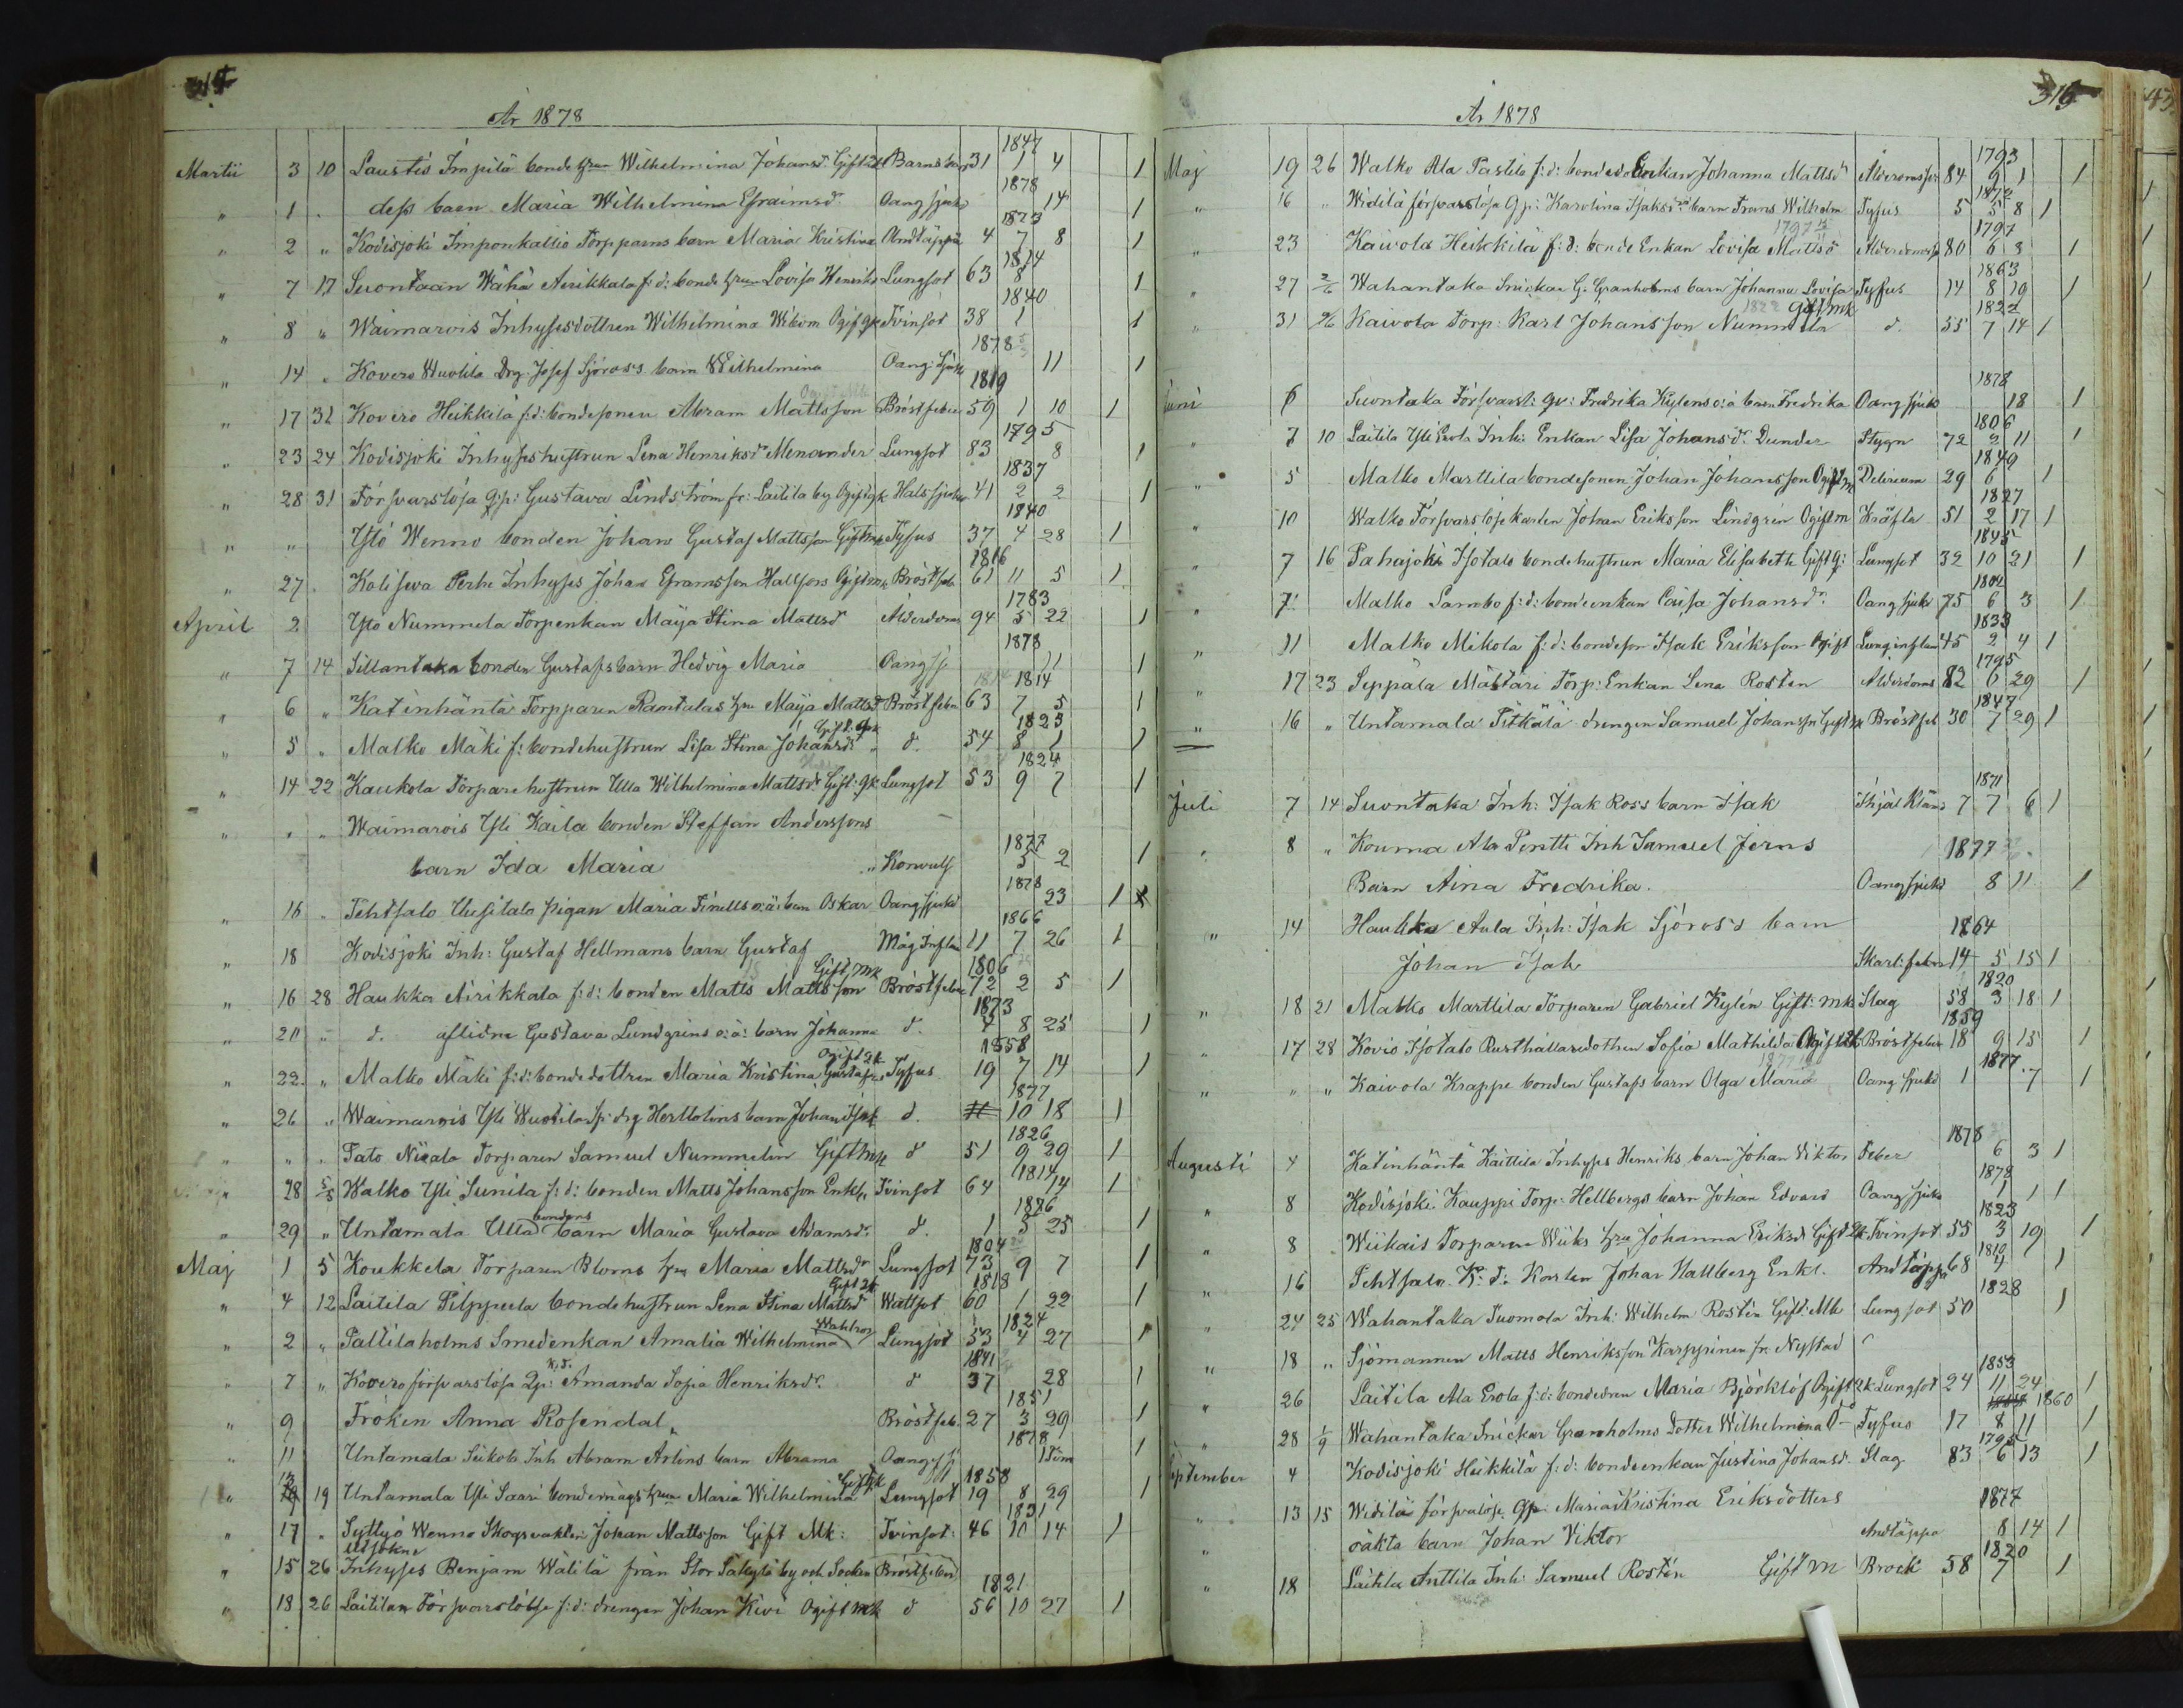 År 1878
1847
Martii 3 10 Laustis Impilä bonde hrun Wilhelmina Johansdr Gift 31 1 4 1
1878
" 1 . dess barn Maria Wilhelmina Efraimsdr Oang sjukd 14 1
1873
" 2 " Kodisjoki Imponkallio Torpparns barn Maria Kristina Andtäppa 4 7 8 1
1814
" 7 17 Suontaan Wähä Airikkala f:d: bonde hrun Lovisa Henriks Lungsot 63 8 1
1840
" 8 " Waimarois Inhysesdottren Wilhelmina Wikom Ogift qk Tvinsot 38 1 1
1878
" 14 " Kovero Wuolila Drg. Josef Sjöross barn Wilhelmina Oang: Sjuk 11 1
1819
" 17 31 Kovero Heikkilä f:d: bondesonen Abram Mattsson Bröstfeber 59 1 10 1
1795
" 23 24 Kodisjoki Inhyseshustrun Lena Henriksdr Menander Lungsot 83 8 1
1837
" 28 31 Försvarslösa qp: Gustava Lindström fr: Laitila by Ogift qk Halssjuka 41 2 2 1
1840
" " Ytö Wenno bonden Johan Gustaf Mattsson Gift mk Tyfus 37 4 28 1
1816
" 27 . Kolisewa Perhe Inhyses Johan Eframsson Hallfors Ogift mk Bröstfeb 61 11 5 1
1783
April 2 Ytö Nummela Torpenkan Maija Stina Mattsdr Ålderdoms 94 5 22 1
1878
" 7 14 Sillantaka bonden Gustafs barn Hedvig Maria Oang sj 11 1
1814 1814
" 6 " Katinhäntä Torpparen Rantalas hru Maija Mattsdr Bröstfeber 63 7 5 1
Gift qk 1823
" 5 " Malko Mäki f: bondehustrun Lisa Stina Johansdr " d. 54 8 1 1
1824
" 14 22 Kaukola Torparehustrun Ulla Wilhelmina Mattsdr Gift: qk Lungsot 53 9 7 1
" " " Waimarois Yli Kaila bonden Steffan Anderssons
1877
barn Ida Maria " Konvuls 5 2 1
1878
" 16 " Tehtsalo Uusitalo pigan Maria Finells o:ä: barn Oskar Oang sjukd 23 1
1866
" 18 Kodisjoki Inh: Gustaf Hellmans barn Gustaf Mag Inflam 11 7 26 1
Gift mk 1806
" 16 28 Haukka Airikkala f:d: bonden Matts Mattsson Bröstfeber 72 2 5 1
1873
" 20 " d. aflidna Gustava Lundgrens o:ä: barn Johanna d. 4 8 25 1
Ogift 2k 1858
" 22 " Malko Mäki f:d: bondedottren Maria Kristina Gustafsd Tyfus 19 7 14 1
1877
" 26 " Waimarois Yli Wuolila f: drg Herttolins barn Johan Isak d. 10 18 1
1826
" " " Tato Nicala Torparen Samuel Nummelin Gift mk d 51 9 29 1
1814
" 28 5/5 Walko Yli Sunila f:d: bonden Matts Johansson Enkl: Tvinsot 64 14 1
bondens 1876
" 29 " Untamala Ulla barn Maria Gustava Adamsdr d. 1 5 25 1
1804
Maj 1 5 Koukkela Torparen Bloms hru Maria Mattsdr Lungsot 73 9 7 1
Gift 2k 1818
" 4 12 Laitila Pilppula bondehustrun Lena Stina Mattsdr Wattsot 60 1 22 1
1824
" 2 " Palttilaholms Smedenkan Amalia Wilhelmina Lungsot 53 4 27 1
K.d. 1841
" 7 " Kovero försvarslösa Qp: Amanda Sofia Henriksdr. d 37 28 1
1851
" 9 Fröken Anna Rosendal " Bröstfeb. 27 3 29 1
1878
" 11 Untamala Seikola Inh Abram Arlins barn Abrama Oang sj 15 tim 1
13 1858
" 19 Untamala Yli Saari bondemågs hrun Maria Wilhelmina Gift 2k Lungsot 19 8 29 1
1831
" 17 " Syttyö Wenno Skogsvakten Johan Mattsson Gift Mk: Tvinsot: 46 10 14 1
utsökne
" 15 26 Inhyses Benjam Wälilä från Stor Säkylä by och Socken Bröstfeber
1821
" 18 26 Laitilan Försvarslöse f:d: drengen Johan Kivi Ogift mk d 56 10 27 1
316
År 1878
1793
Maj 19 26 Walko Ala Pastila f:d: bonde Enkan Johanna Mattsdr Ålderoms 84 9 1 1
1872
" 16 " Widilä försvarslösa qp: Karolina Isaksdrs barn Frans Wilhelm Tyfus 5 5 8 1
1797 1797
" 23 Kaivola Heikkilä f:d: bonde Enkan Lovisa Mattsd Ålderdoms 80 6 3 1
1863
" 27 2/6 Wahantaka Snickar G: Granholms barn Johanna Lovisa Tyfus 14 8 10 1
1822 Gift mk 1822
" 31 2/6 Kaivola Torp: Karl Johansson Nummela d. 55 7 14 1
1878
Juni 6 Suontaka Försvarsl: qv: Fredrika Kylens o:ä barn Fredrika Oang sjukd 18 1
1806
" 7 10 Laitila Yli Erola Inh: Enkan Lisa Johansdr. Dunder Stygn 72 2 11 1
1849
" 5 Malko Marttila bondesonen Johan Johansson Ogift m Delirium 29 6 1
1827
" 10 Walko Försvarslöse karlen Johan Eriksson Lindgrén Ogift m Kräfta 51 2 17 1
1845
" 7 16 Pahajoki Isotalo bondehustrun Maria Elisabeth Gift q: Lungsot 32 10 21 1
1802
" 7 Malko Sambo f:d: bondeenkan Caisa Johansdr. Oang sjukd 75 6 3 1
1833
" 11 Malko Mikola f:d: bondeson Isak Eriksson Ogift Lunginflam 45 2 4 1
1795
" 17 23 Seppälä Mästäri Torp: Enkan Lena Rosten Ålderdoms 82 6 29 1
1847
" 16 " Untamala Pitkälä drengen Samuel Johansson Gift mk Bröstfeb 30 7 29 1
1871
Juli 7 14 Suontaka Inh: Isak Ross barn Isak Ihjäl Kläms 7 7 6 1
" 8 " Kouma Ala Pentti Inh Samuel Jerns 1877
Barn Aina Fredrika. Oang sjukd 8 11 1
" 14 Haukka Aula Inh: Isak Sjöross barn 1864
Johan Isak Skarl: feber 14 5 15 1
1820
" 18 21 Malko Marttila Torparen Gabriel Kylén Gift: mk Slag 58 3 18 1
1859
" 17 28 Kovio Isotalo Rusthållaredottren Sofia Mathilda Ogift 2k Bröstfeber 18 9 15 1
1877 1877
" " Kaivola Krappe bonden Gustafs barn Olga Maria Oang sjukd 1 7 1
1878
Augusti 4 Katinhäntä Kaittila Inhyses Henriks barn Johan Viktor Feber 6 3 1
1878
" 8 Kodisjoki Kauppi Torp: Hellbergs barn Johan Edvard Oang sjukd 1 1 1
1823
" 8 Wiikais Torparen Wiiks hru Johanna Eriksdr Gift 2k Tvinsot 55 3 19 1
1810
" 16 Tehtsalo K: d: Karlen Johan Hallberg Enkl. Andtäppa 68 4 1
1828
" 24 25 Wahantaka Tuomola Inh: Wilhelm Rostén Gift: Mk Lungsot 50 1
" 18 " Sjömannen Matts Henriksson Karppinen fr. Nystad
1853
" 26 Laitila Ala Erola f:d: bondedren Maria Björklöf Ogift 2k Lungsot 24 11 24 1
1860
" 28 1/9 Wahantaka Snickar Granholms dotter Wilhelmina O— Tyfus 17 8 11 1
1795
September 4 Kodisjoki Heikkilä f:d: bondeenkan Justina Johansdr. Slag 83 6 13 1
" 13 15 Widilä försvalöse Qp: Maria Kristina Eriksdotters 1877
" oäkta barn Johan Viktor Andtäppa 8 14 1
1820
" 18 Laitila Anttila Inh: Samuel Rostén Gift m Brock 58 7 1